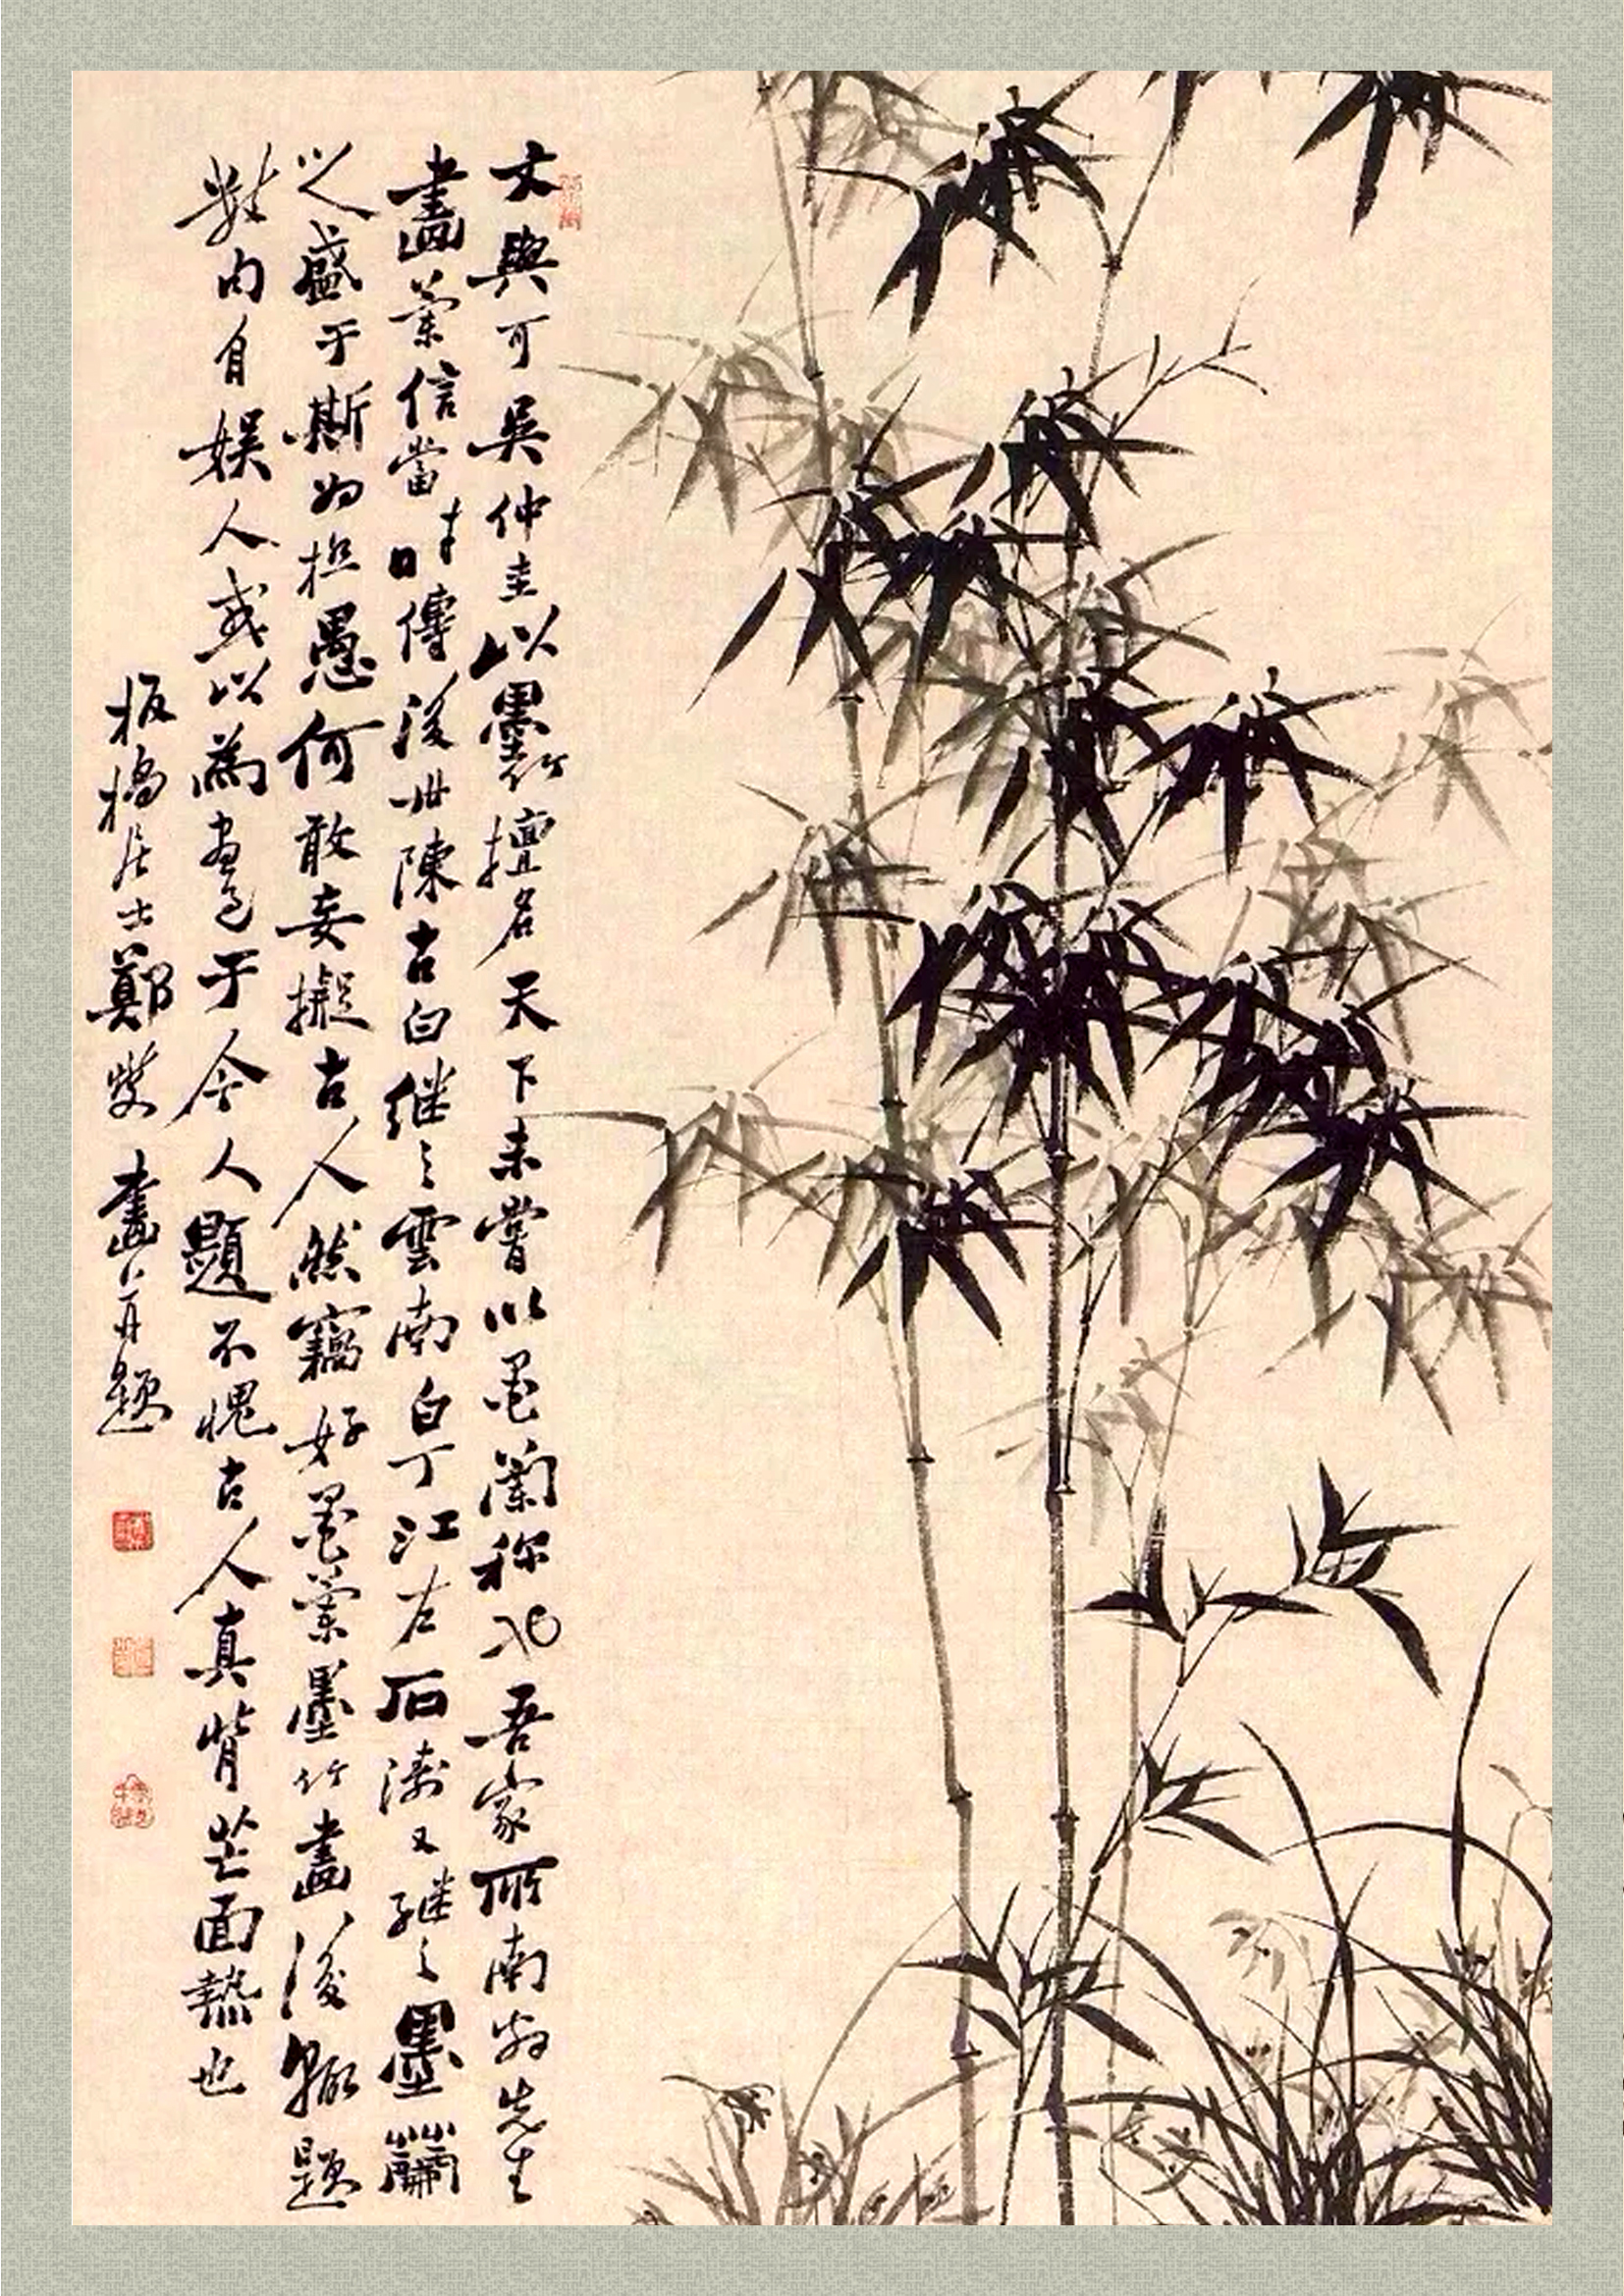 文與可吳仲圭以墨竹擅名天下未嘗以墨蘭稱也吾家所南翁先生
畫蘭信當時傳後世陳古白继之雲南白丁江左石濤又继之墨蘭
之盛于斯为極愚何敢妄擬古人然竊好墨蘭墨竹畫後輒題
數句自娛人或以為畫過于今人題不愧古人真背芒面熱也
板橋居士鄭燮畫并題